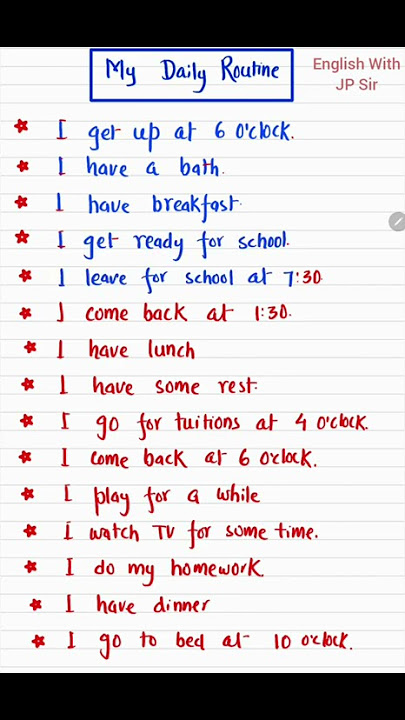 My Daily Routine
English With
JP Sir
I get up at 6 O'clock.
I have a bath.
I have breakfast.
I get ready for school.
I leave for school at 7:30
I come back at 1:30.
I have lunch
I have some rest.
I go for tuitions at 4 O'clock.
I come back at 6 O'clock.
I play for a while
I watch TV for some time.
I do my homework.
I have dinner
I go to bed at 10 O'clock.